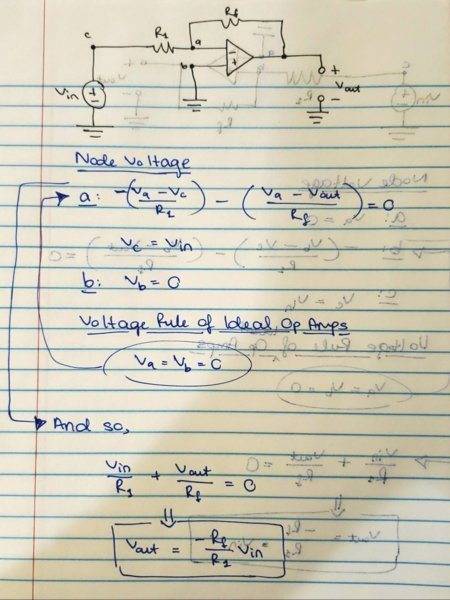 R1
Rf
c
a
b
Vin
+
-
Vout
Node Voltage
a: -(Va - Vc / R1) - (Va - Vout / Rf) = 0
Vc = Vin
b: Vb = 0
Voltage Rule of Ideal Op Amps
Va = Vb = 0
And so,
Vin / R1 + Vout / Rf = 0
⇓
Vout = -Rf / R1 Vin